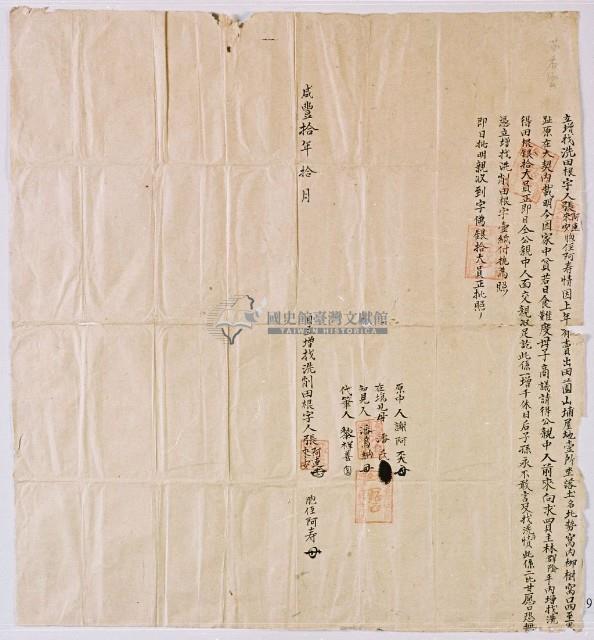 立增找洗田根字人張阿連來安胞侄阿寿情因上年有賣出田園山埔屋地壹所坐落土名北勢窩內柳樹窩口四至
趾原在大契內載明今因家中貧苦日食難度母子商議請得公親中人前來向求買主林 內增找洗
得田根銀拾大員正即日仝公親中人面交親收足訖此係一增千休日后子孫永不敢言及找洗 此係二比甘愿口恐無
憑立增找洗削田根字壹紙付執為照
即日批明親收到字偶銀拾大員正批照
原中人謝阿天
在場兄母潘氏
知見人潘 納
代筆人黎祥善
咸豐拾年拾月 日立增找洗削田根字人張阿連來安
胞侄阿寿
國史館臺灣文獻館
TAIWAN HISTORICA
9